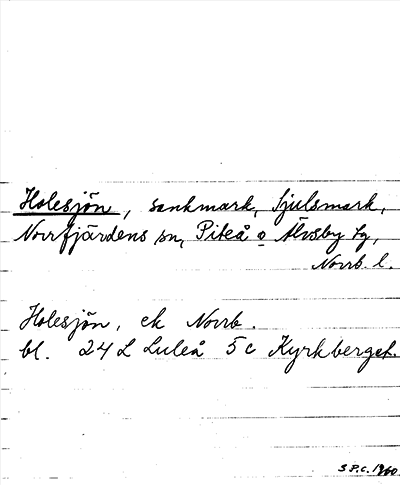 Holesjön, sankmark, Sjulsmark,
Norrfjärdens sn, Piteå o Älvsby tg,
Norrb. l.
Holesjön, ek Norrb.
bl. 24 L Luleå 5c Kyrkberget.
S.P.C. 1960.